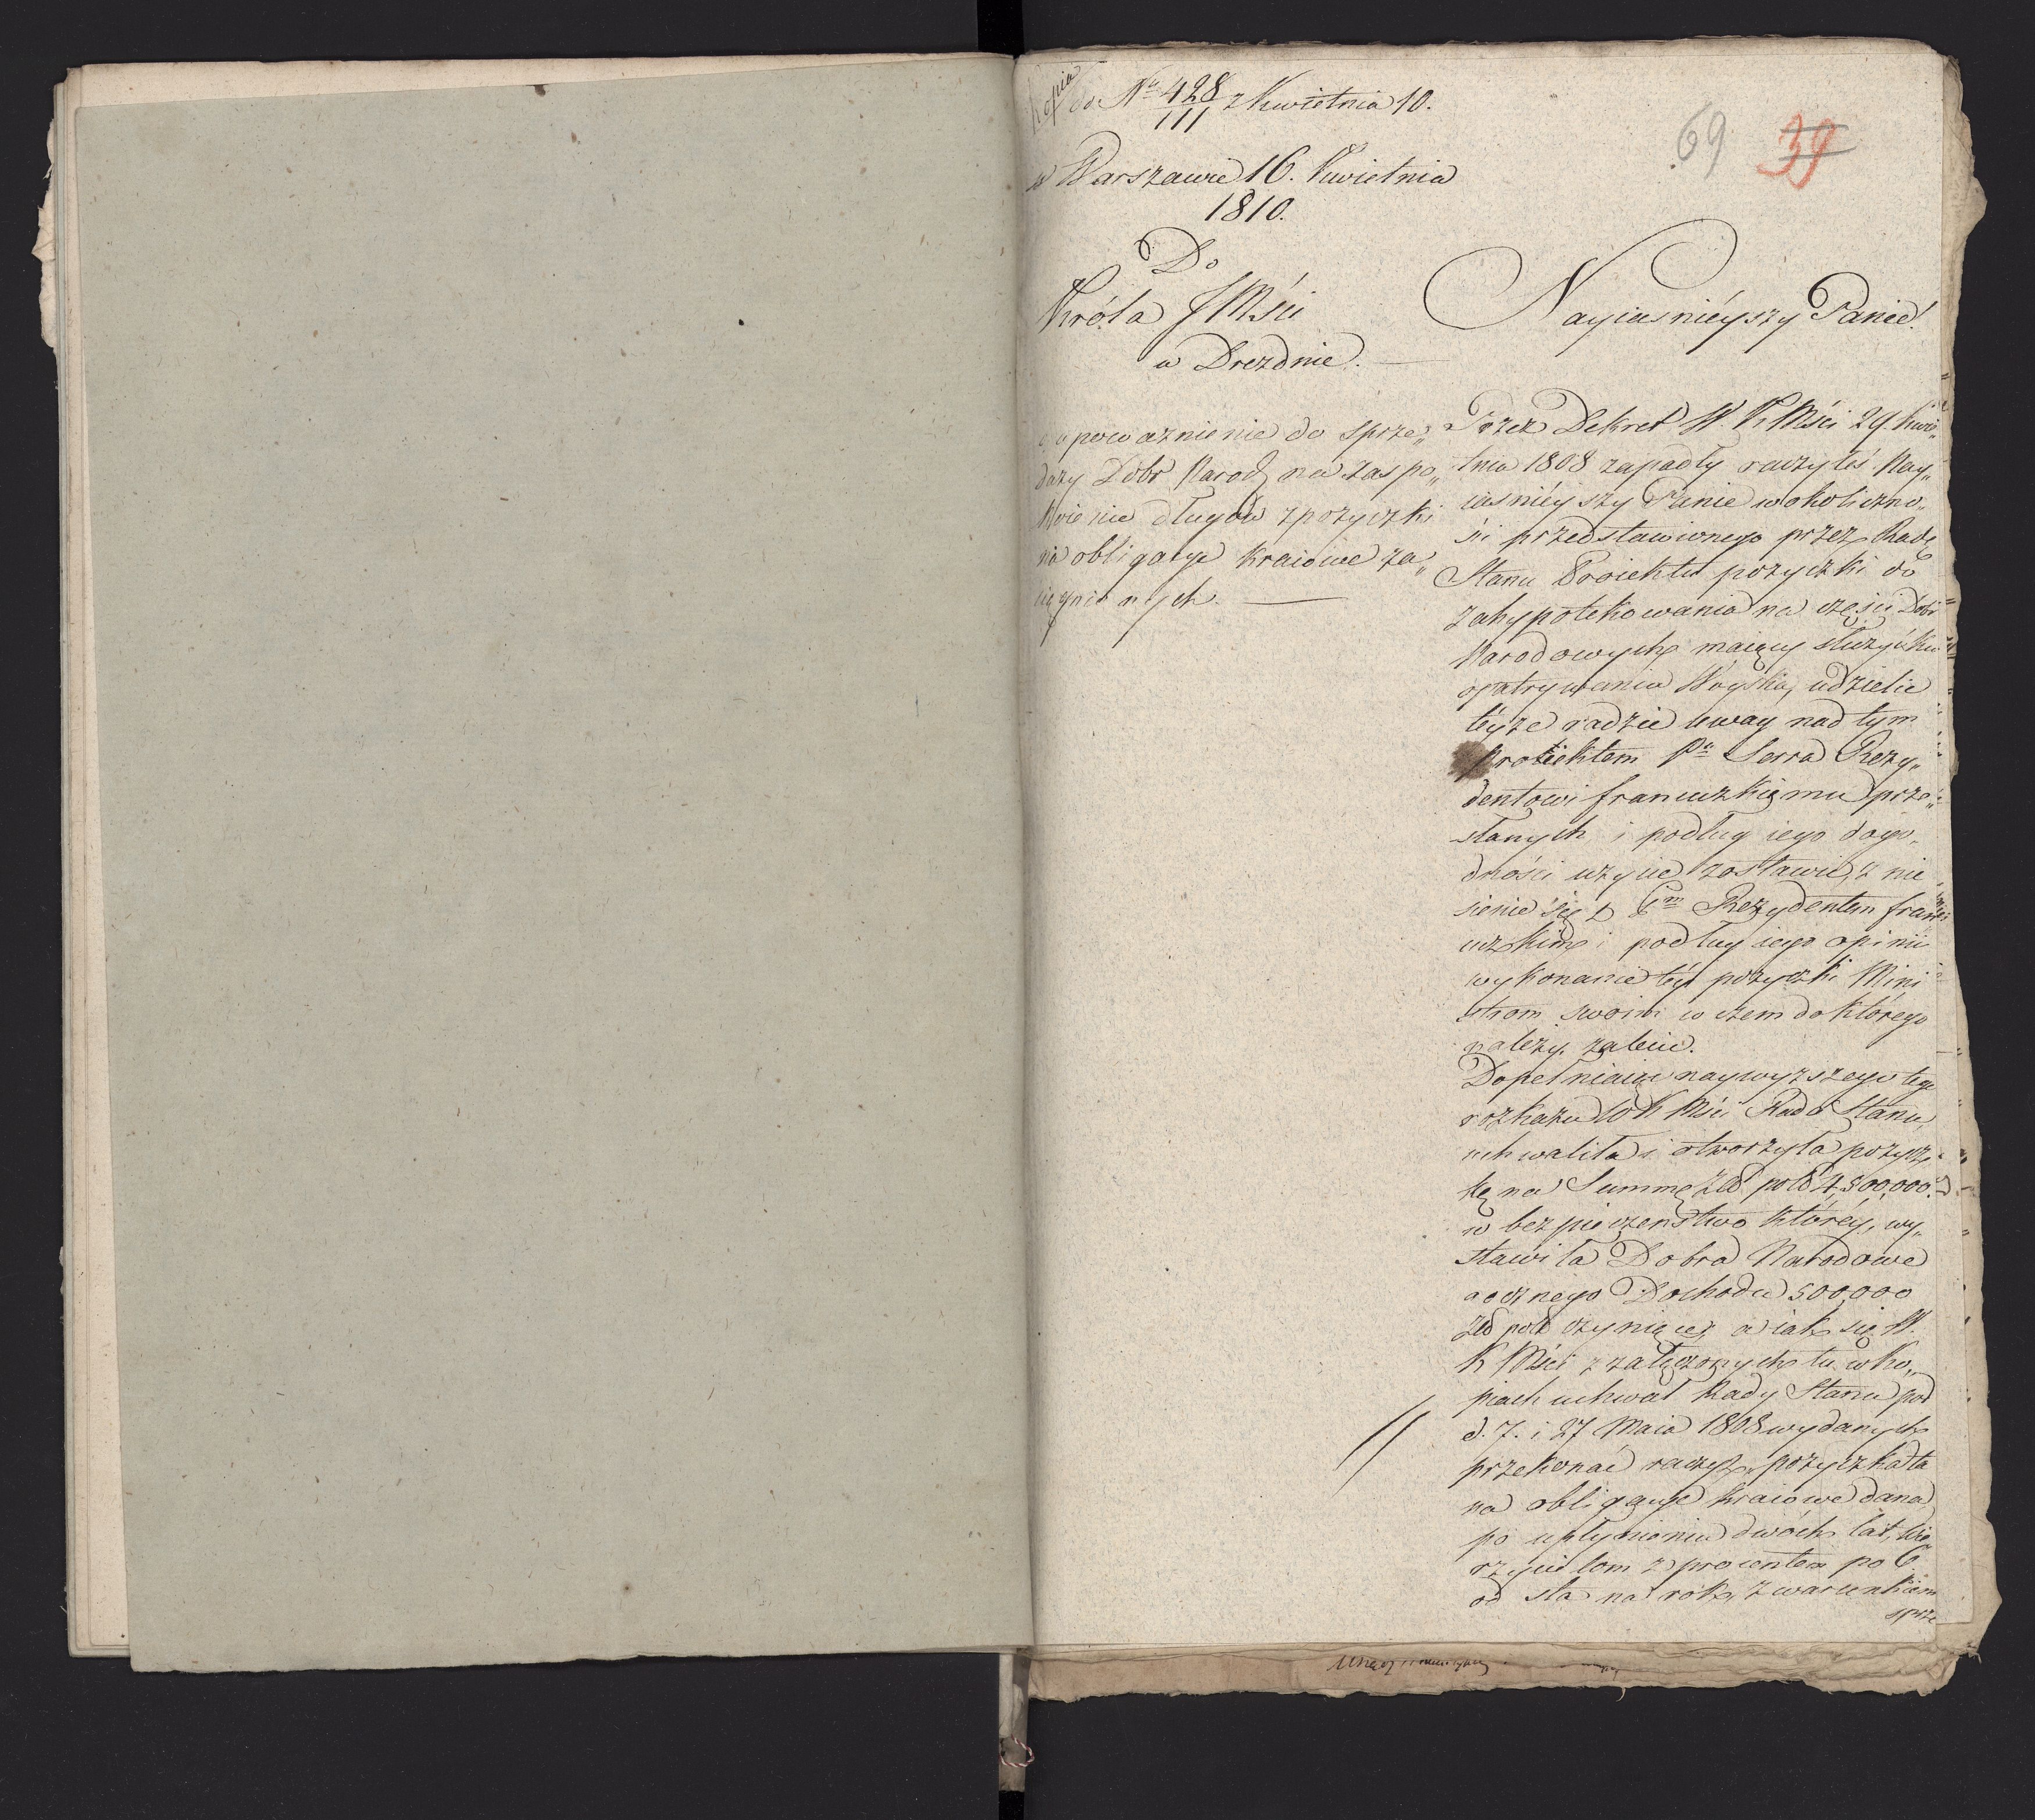 Kopia
do Nu 428/111 z Kwietnia 10.
69 39
w Warszawie 16. Kwietnia
1810.
Do
Króla JMści
w Dreznie.
Nayiasnieyszy Panie!
o upoważnienie do sprze„
daży Dobr Narod na zaspo„
koienie długów z pożyczki
na obligacye kraiowe za„
ciągnionych.
Przez Dekret W. K Mści 29. Kwie„
tnia 1808 zapadły raczyłeś Nay„
iasnieyszy Panie w okoliczno„
ści przedstawionego przez Radę
Stanu Proiektu pożyczki do
zahypotekowania na części Dobr
Narodowych maiący służyć ku
opatrywaniu Woyska, udzielić
teyże radzie uwag nad tym
proiektem Pu Serra Rezy„
dentowi francuzkiemu prze„
słanych i podług iego dogo„
dności użycie zostawić, z nie
sienie się z Pm Rezydentem fran
cuzkim i podług iego opinii
wykonanie téy pożyczki Mini
strom swoim w czem do którego
należy zalecić.
Dopełniaiąc naywyższego tego
rozkazu W K Mści Rada Stanu
uchwaliła i otworzyła pożycz„
kę na Summę Złł polł 4,500,000.
w bezpieczeństwo któréy, wy„
stawiła Dobra Narodowe
rocznego Dochodu 500,000
Złł polł czyniące, a iak się W.
K Mści z załączonych tu w ko„
piach uchwał Rady Stanu pod
d. 7. i 27 Maia 1808 wydanych
przekonać raczysz, pożyczka ta
na obligacye kraiowe dana
po upłynieniu dwóch lat, wie„
rzycielom z procentem po 6
od sta na rok, z warunkiem
sprze